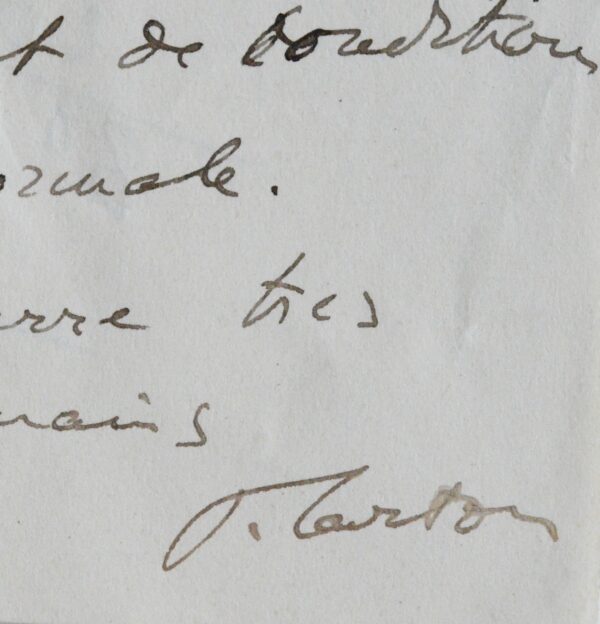 t de conditions
ormale.
erre tres
mains
P. Carton